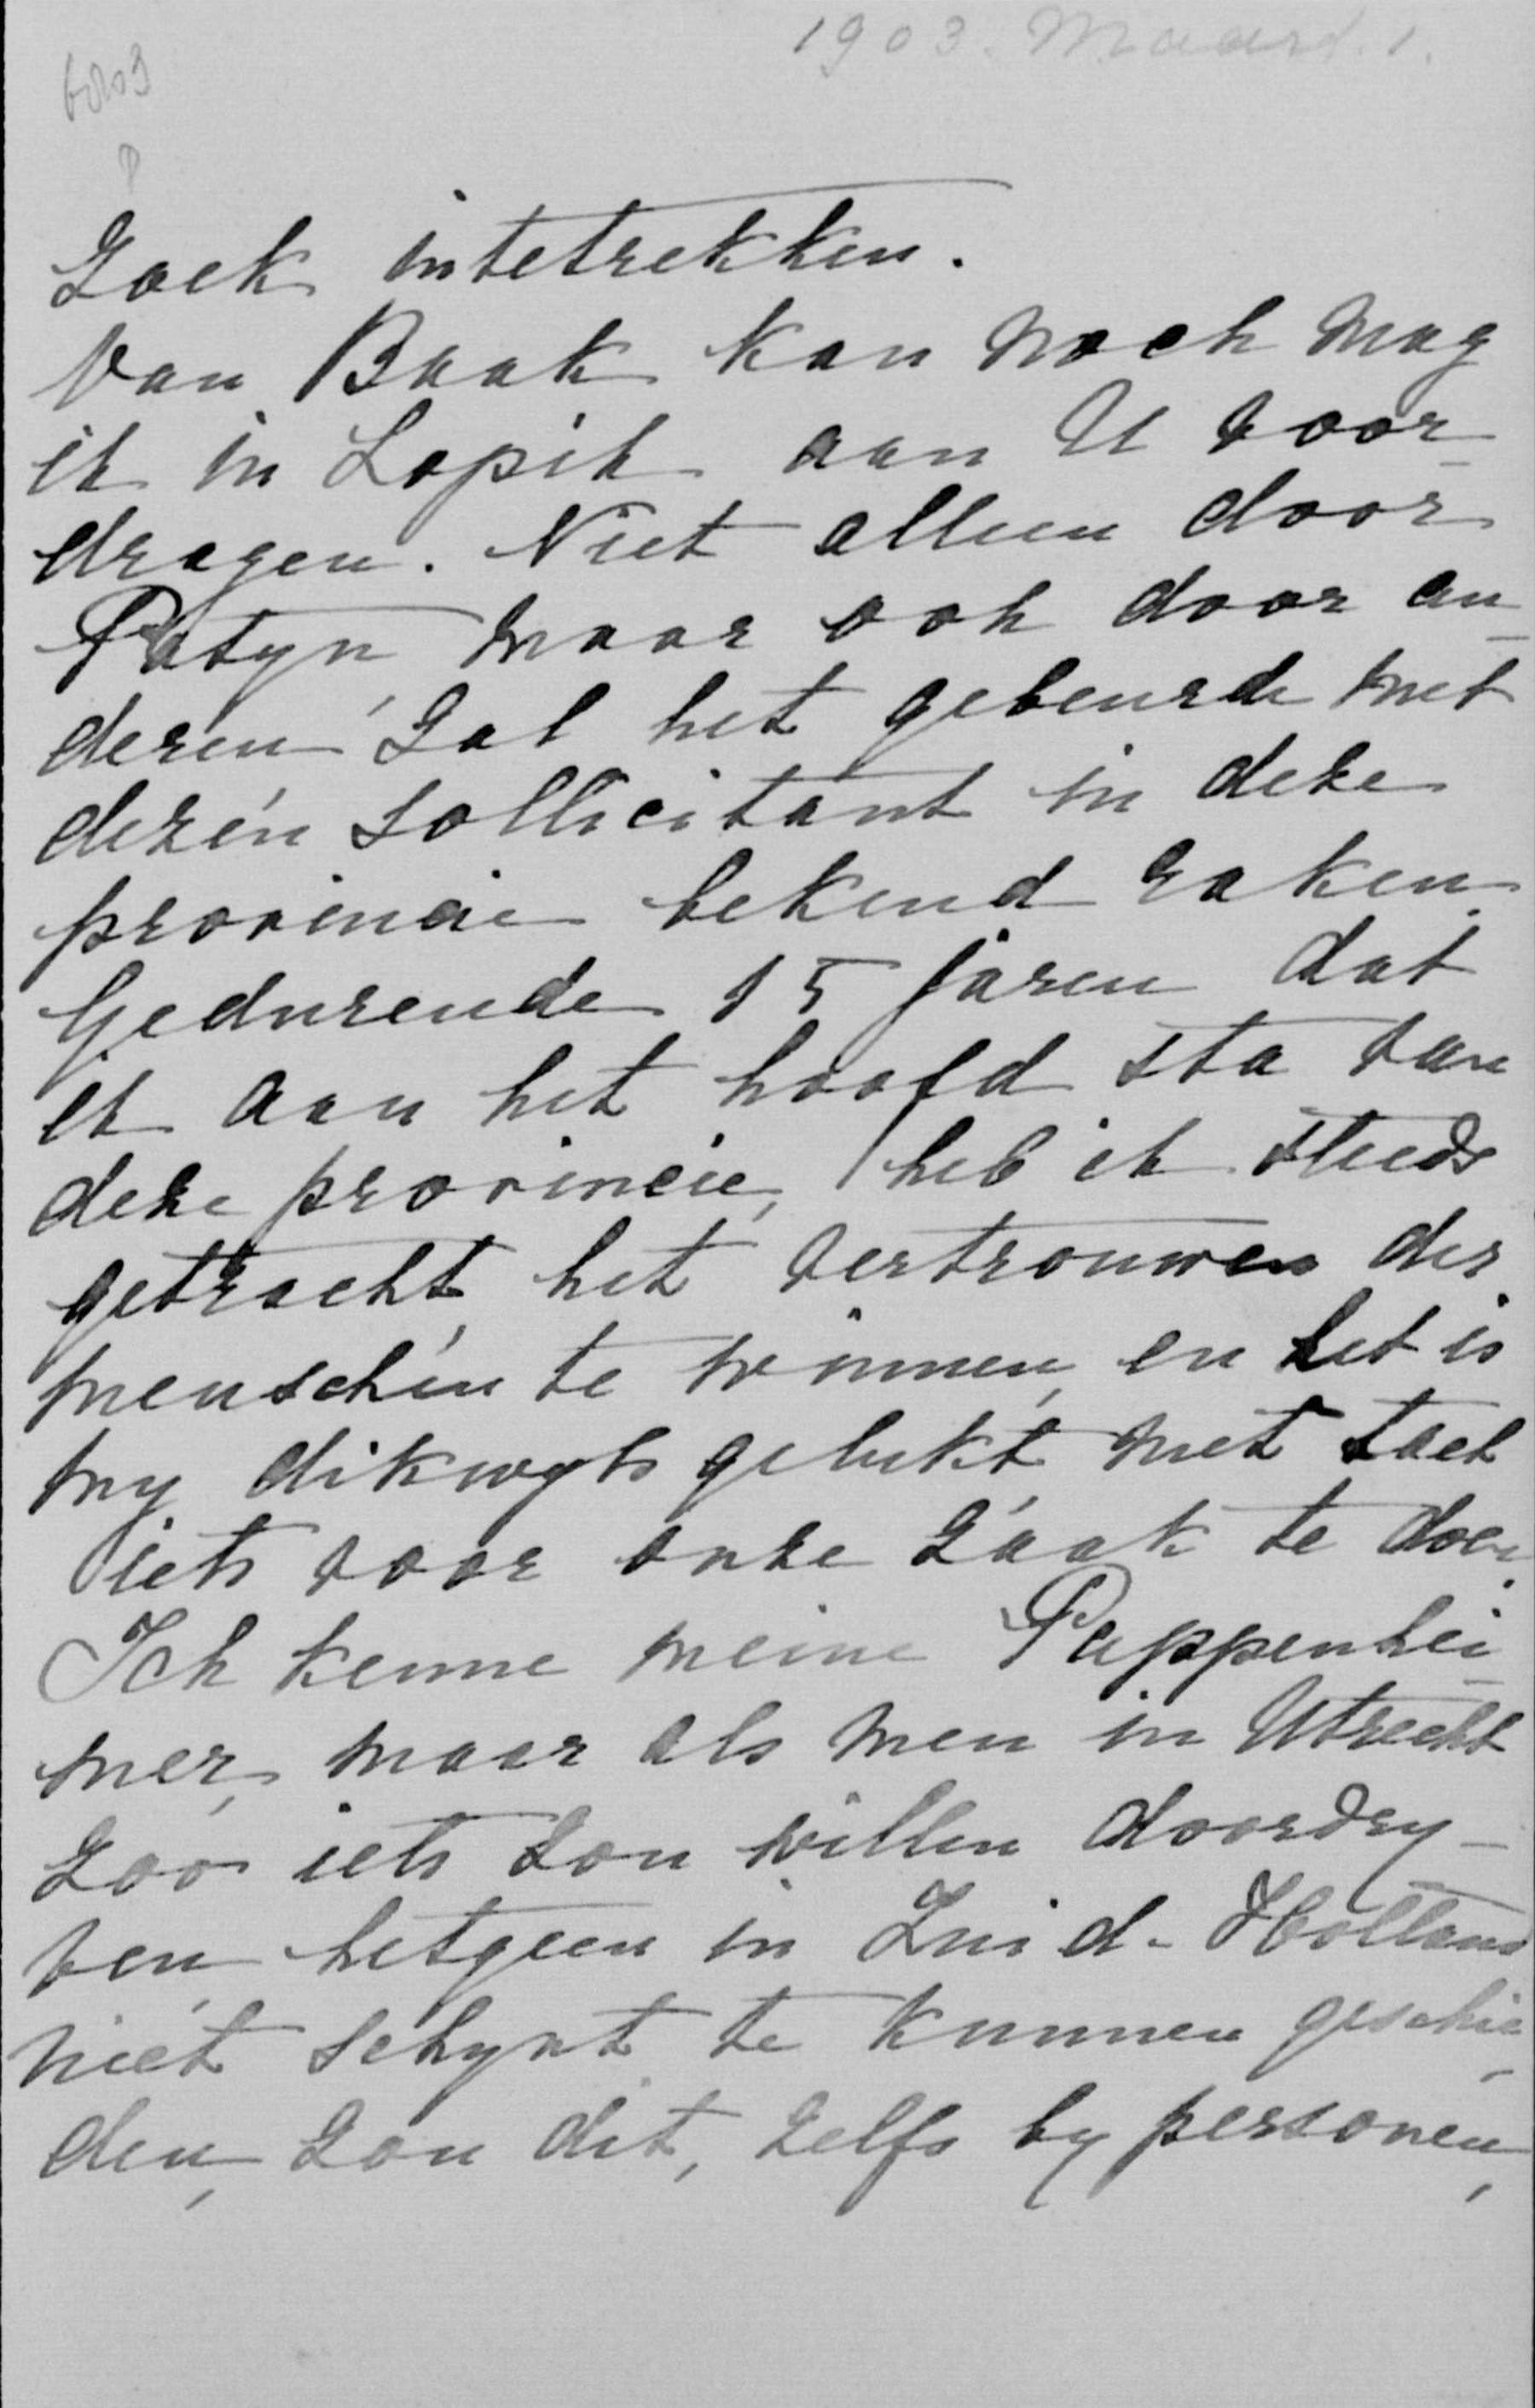 1903. Maart. 1.
zoek intetrekken.
Van Baak kan noch mag
ik in Lopik aan U voor-
dragen. Niet alleen door
Patyn maar ook door an-
deren zal het gebeurde met
dezen sollicitant in deze
provincie bekend raken.
Gedurende 15 jaren dat
ik aan het hoofd sta van
deze provincie, heb ik steeds
getracht het vertrouwen der
menschen te winnen, en het is
my dikwyls gelukt met tact
iets voor onze zaak te doen.
Ich kenne meine Pappenhei-
mer, maar als men in Utrecht
zoo iets zou willen doordry-
ven, hetgeen in Zuid-Holland
niet schynt te kunnen geschie-
den, zou dit, zelfs by personen,